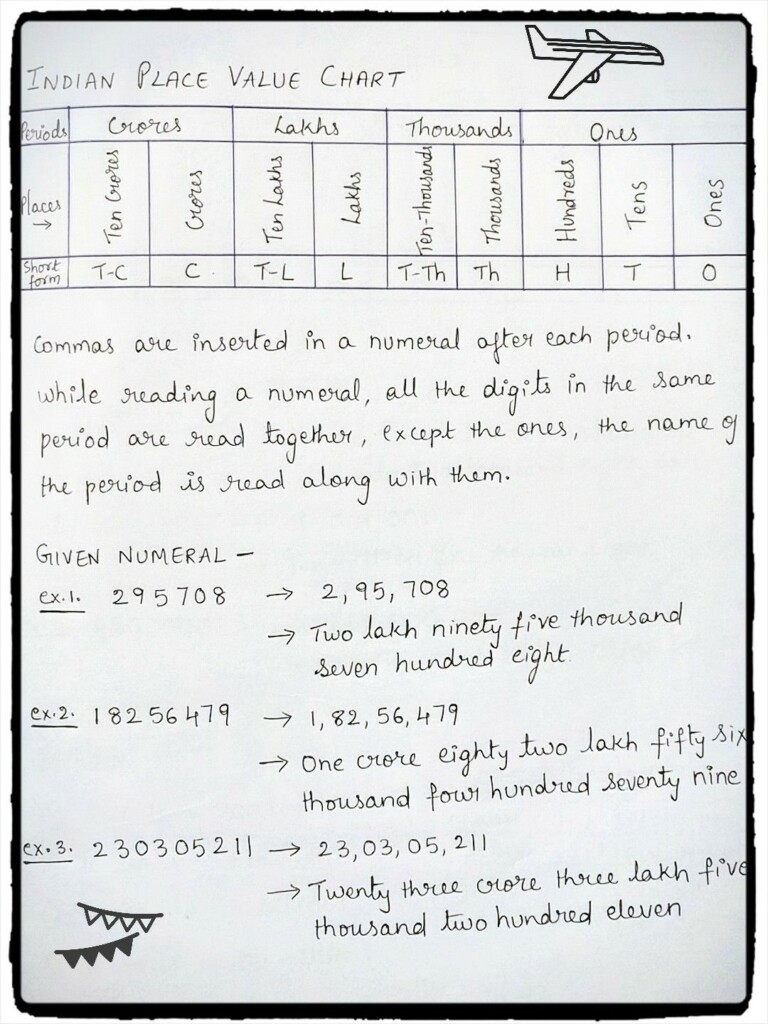 INDIAN PLACE VALUE CHART
Periods Crores Lakhs Thousands Ones
Places → Ten Crores Crores Ten Lakhs Lakhs Ten-Thousands Thousands Hundreds Tens Ones
Short form T-C C T-L L T-Th Th H T O
Commas are inserted in a numeral after each period.
While reading a numeral, all the digits in the same
period are read together, except the ones, the name of
the period is read along with them.
GIVEN NUMERAL –
ex.1. 295708 → 2,95,708
→ Two lakh ninety five thousand
seven hundred eight.
ex.2. 18256479 → 1,82,56,479
→ One crore eighty two lakh fifty six
thousand four hundred seventy nine
ex.3. 230305211 → 23,03,05,211
→ Twenty three crore three lakh five
thousand two hundred eleven